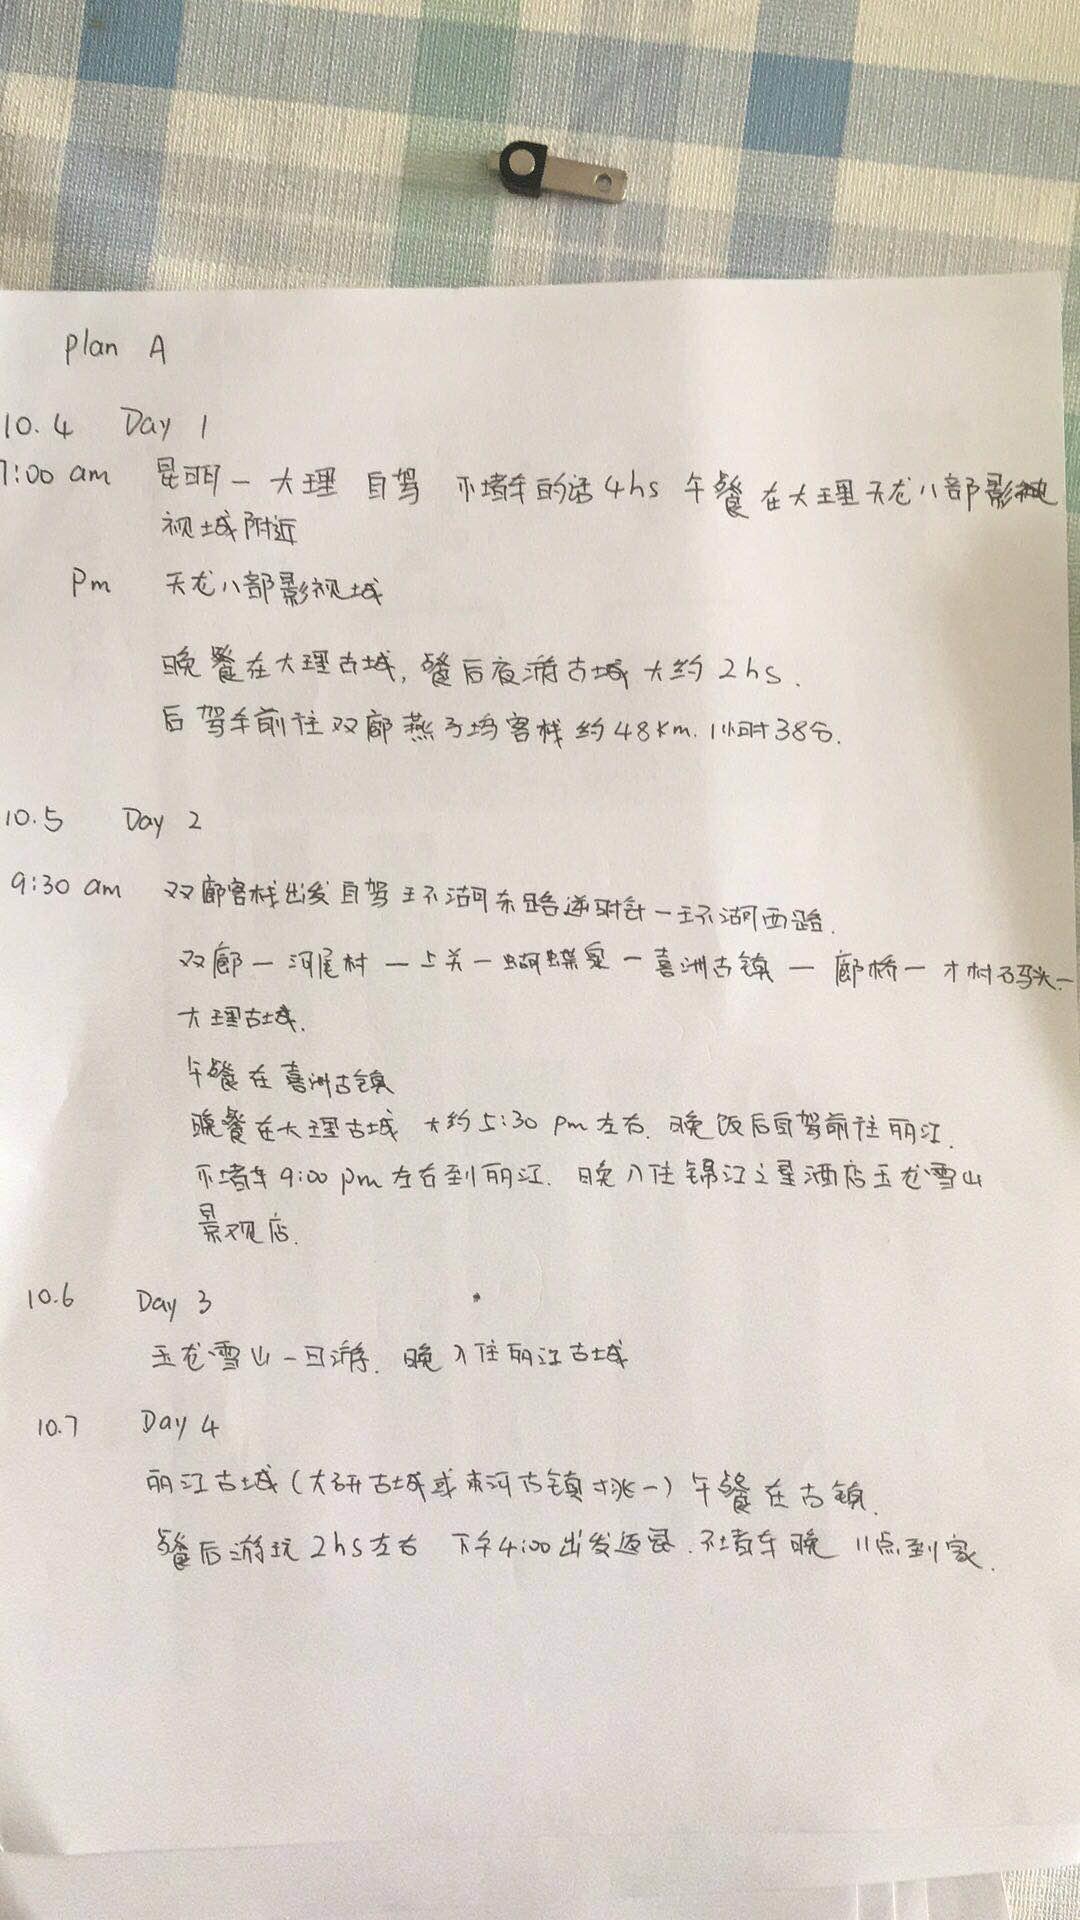 Plan A
10.4 Day 1
7:00 am 昆明—大理 自驾 不堵车的话4hs 午餐在大理天龙八部影
视城附近
Pm 天龙八部影视城
晚餐在大理古城,餐后夜游古城大约2hs.
后驾车前往双廊燕子坞客栈约48km.1小时38分.
10.5 Day 2
9:30 am 双廊客栈出发自驾环湖东路逆时针—环湖西路.
双廊—河尾村—上关—蝴蝶泉—喜洲古镇—廊桥—才村码头—
大理古城.
午餐在喜洲古镇
晚餐在大理古城 大约5:30 pm左右.晚饭后自驾前往丽江.
不堵车9:00 pm左右到丽江.晚入住锦江之星酒店玉龙雪山
景观店.
10.6 Day 3
玉龙雪山一日游.晚入住丽江古城
10.7 Day 4
丽江古城(大研古城或束河古镇挑一)午餐在古镇.
餐后游玩2hs左右 下午4:00出发返昆.不堵车晚11点到家.